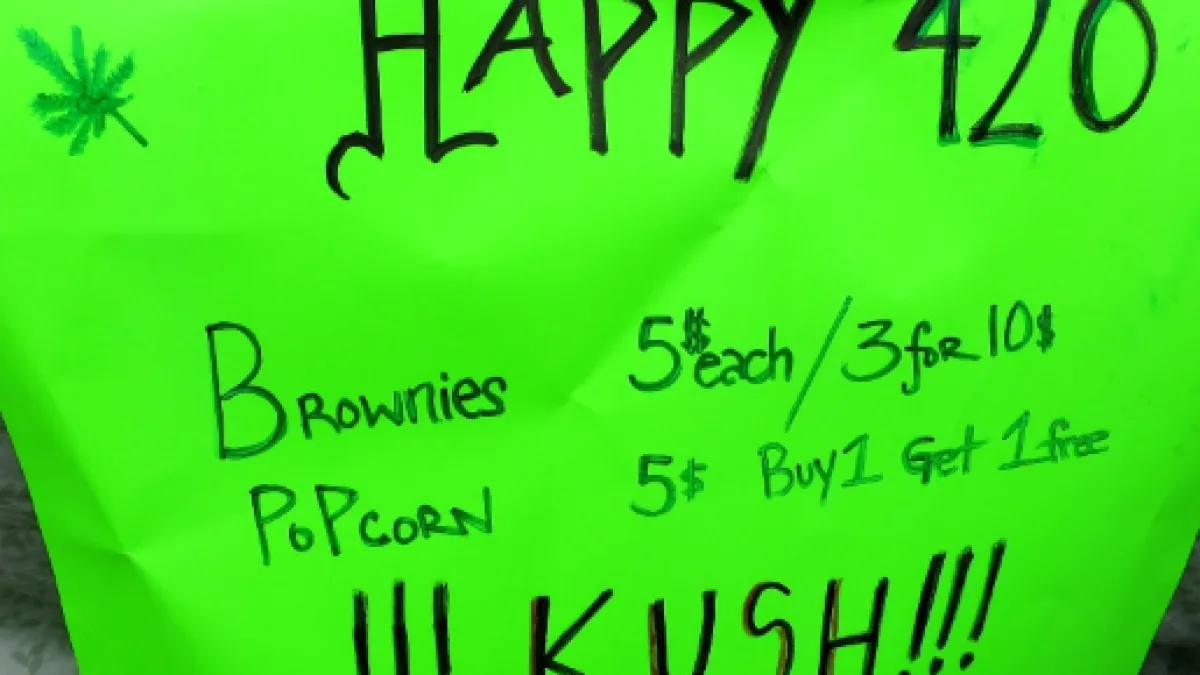 HAPPY 420
Brownies 5$ each / 3 for 10$
PoPcorn 5$ Buy 1 Get 1 free
!!! KUSH!!!